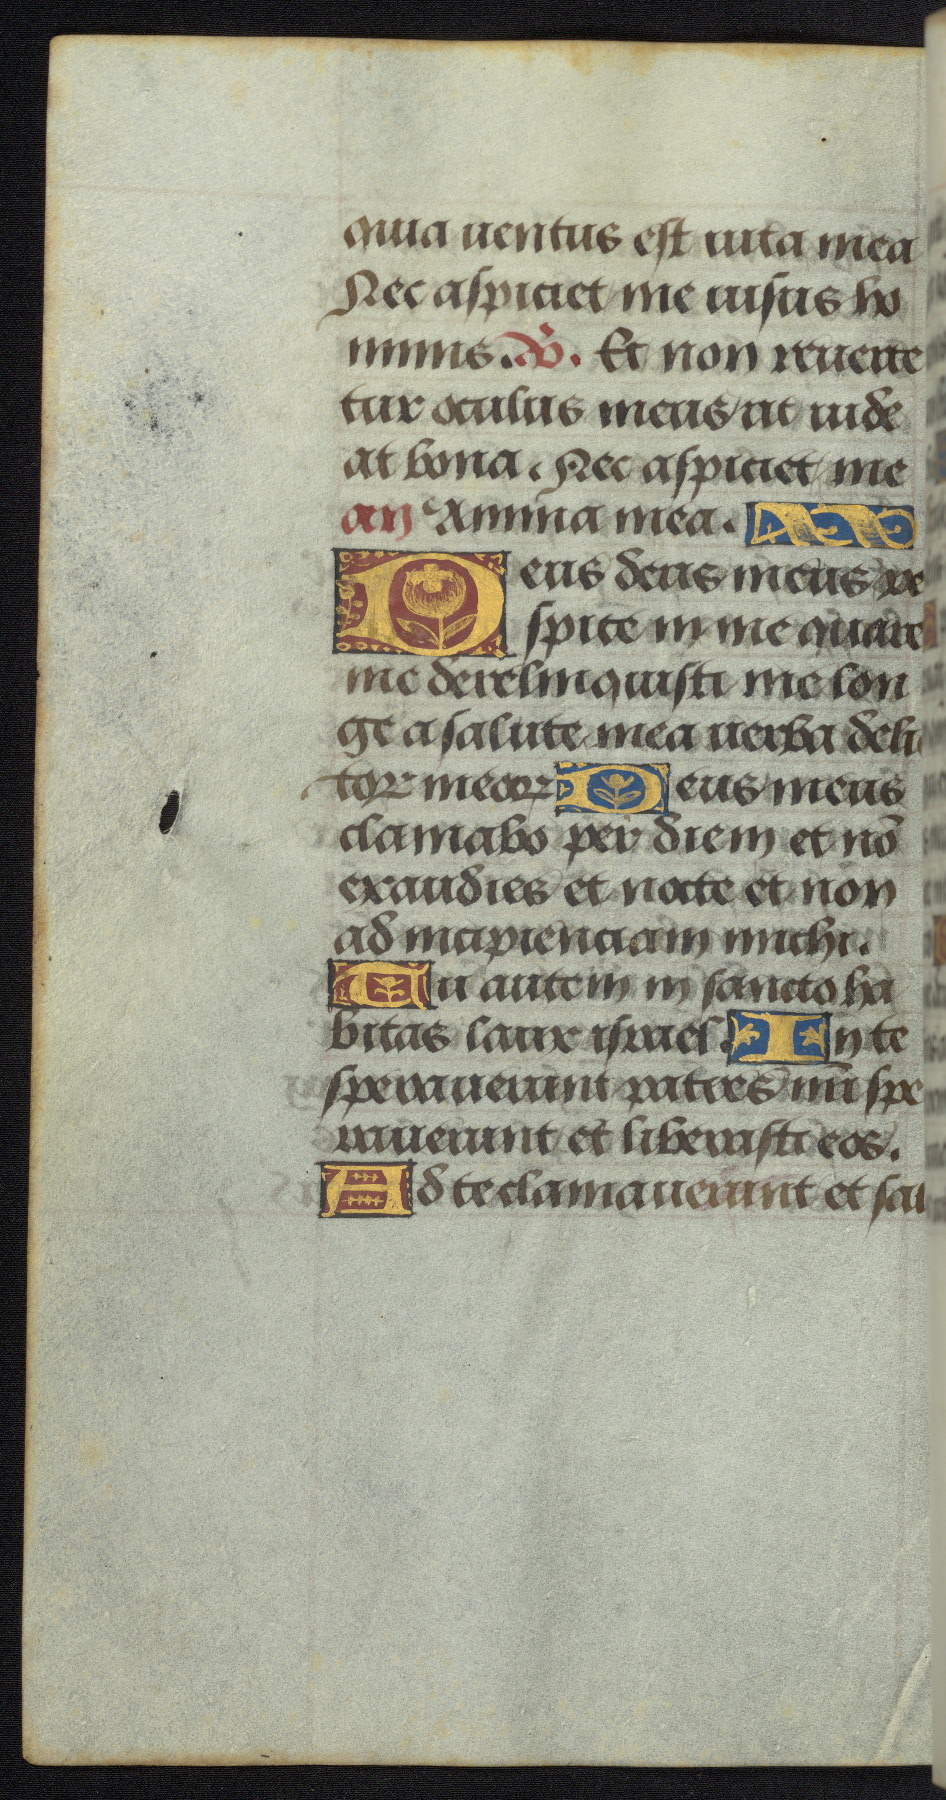 quia uentus est uita mea
Nec aspiciet me uisus ho
minis. ℣. Et non reuerte
tur oculus meus ut uide
at bona. Nec aspiciet me
an Anima mea.
Deus deus meus re
spice in me quare
me derelinquisti me lon
ge a salute mea uerba deli
ctoꝝ meoꝝ Deus meus
clamabo per diem et nō
exaudies et nocte et non
ad incipienciam michi.
Tu autem in sancto ha
bitas laux israel. In te
sperauerunt patres nr̄i spe
rauerunt et liberasti eos.
Ad te clamauerunt et sal